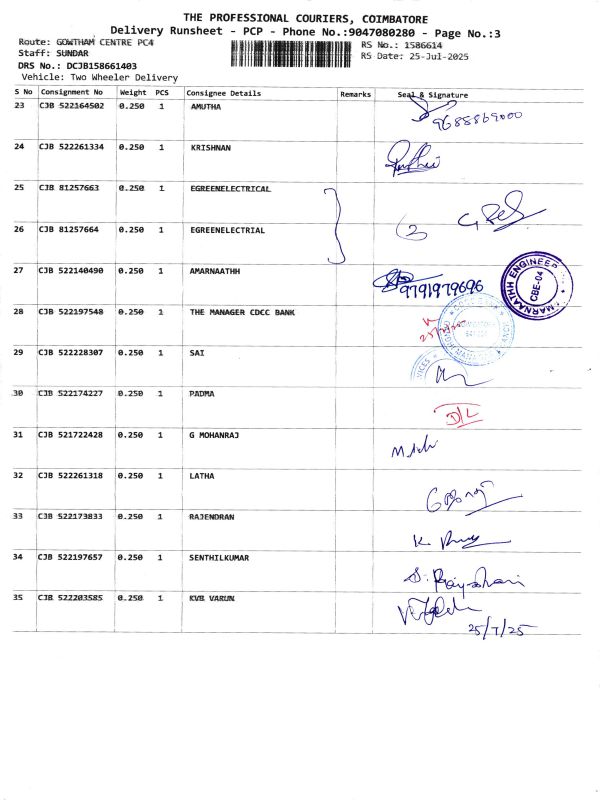 THE PROFESSIONAL COURIERS, COIMBATORE
Delivery Runsheet - PCP - Phone No.:9047080280 - Page No.:3
Route: GOWTHAM CENTRE PC4
RS No.: 1586614
Staff: SUNDAR
RS Date: 25-Jul-2025
DRS No.: DCJB158661403
Vehicle: Two Wheeler Delivery
S No Consignment No Weight PCS Consignee Details Remarks Seal & Signature
23 CJB 522164502 0.250 1 AMUTHA
9688869000
24 CJB 522261334 0.250 1 KRISHNAN
25 CJB 81257663 0.250 1 EGREENELECTRICAL
26 CJB 81257664 0.250 1 EGREENELECTRIAL
27 CJB 522140490 0.250 1 AMARNAATHH
9791979696
MARNAATHH ENGINEER
CBE-04
28 CJB 522197548 0.250 1 THE MANAGER CDCC BANK
29 CJB 522228307 0.250 1 SAI
30 CJB 522174227 0.250 1 PADMA
D/L
31 CJB 521722428 0.250 1 G MOHANRAJ
32 CJB 522261318 0.250 1 LATHA
33 CJB 522173833 0.250 1 RAJENDRAN
34 CJB 522197657 0.250 1 SENTHILKUMAR
35 CJB 522203585 0.250 1 KVB VARUN
25/7/25